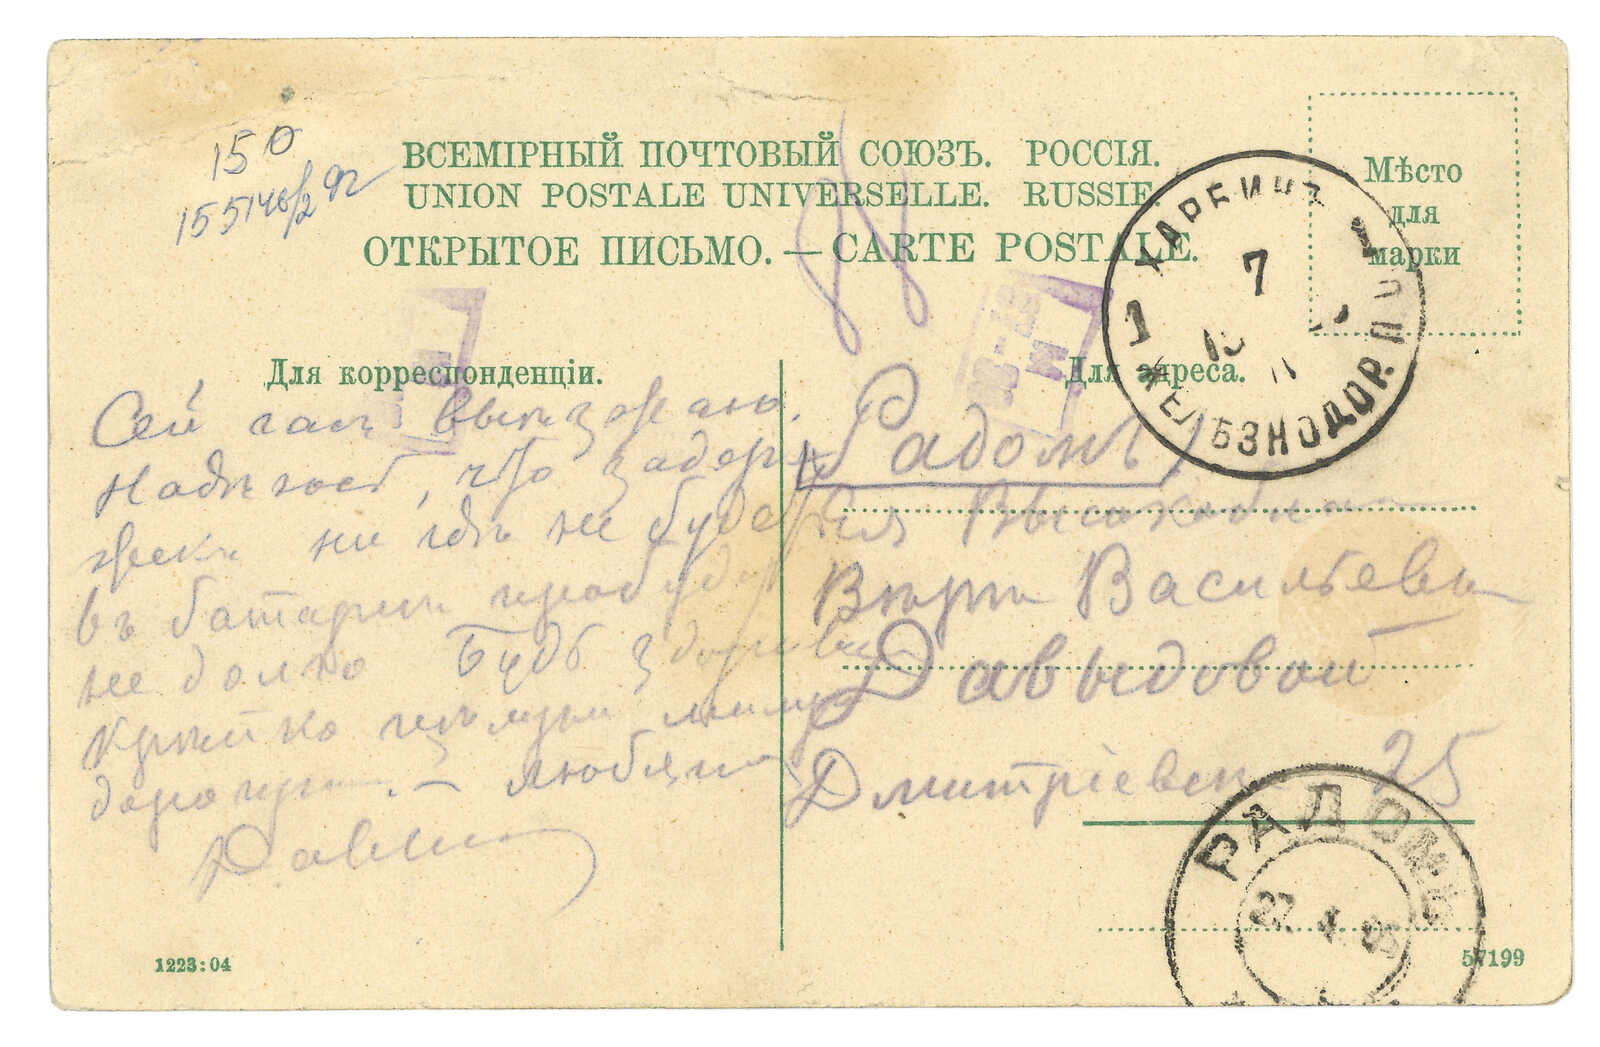 150
155146/2 92
ВСЕМІРНЫЙ ПОЧТОВЫЙ СОЮЗЪ. РОССІЯ.
UNION POSTALE UNIVERSELLE. RUSSIE.
ОТКРЫТОЕ ПИСЬМО. — CARTE POSTALE.
Мѣсто
для
марки
ХАРБИНЪ
7
1 1
ЖЕЛѢЗНОДОР. П.
Для корреспонденціи.
Сей часъ выѣзжаю.
Надѣюсь, что задер
жекъ ни гдѣ не будетъ
въ батареи пробуду
не долго Будь здорова
Крѣпко цѣлую милую
дорогую. — любящій
Павелъ
Для адреса.
Радомъ
Ея Высокобл
Вѣрѣ Васильевнѣ
Давыдовой
Дмитріевск 25
РАДОМЪ
27. 4. 05
1223:04
57199